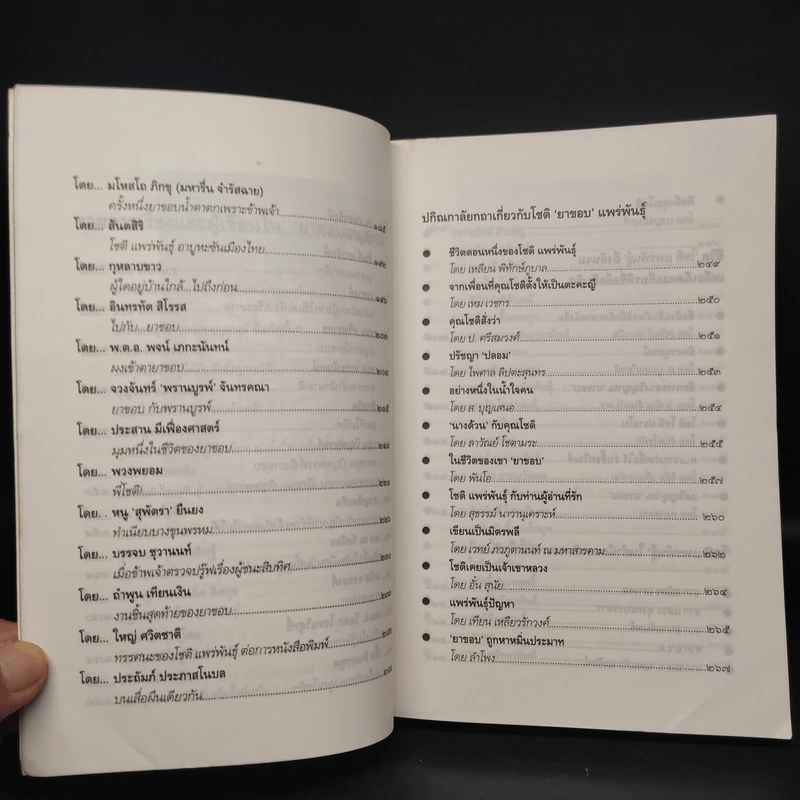 โดย... มโหสโถ ภิกขุ (มหารื่น จำรัสฉาย)
ครั้งหนึ่งยาขอบน้ำตาตกเพราะข้าพเจ้า....................๑๘๕
โดย... สันตสิริ
โชติ แพร่พันธุ์ อาบูหะซันเมืองไทย....................๑๙๒
โดย... กุหลาบขาว
ผู้ใดอยู่บ้านใกล้...ไปถึงก่อน....................๑๙๖
โดย... อินทรทัต สิโรรส
ไปกับ...ยาขอบ....................๒๐๑
โดย... พ.ต.อ. พจน์ เภกะนันทน์
ผงเข้าตายาขอบ....................๒๐๔
โดย... จวงจันทร์ 'พรานบูรพ์' จันทรคณา
ยาขอบ กับพรานบูรพ์....................๒๑๕
โดย... ประสาน มีเฟื่องศาสตร์
มุมหนึ่งในชีวิตของยาขอบ....................๒๑๘
โดย... พวงพยอม
พี่โชติ....................๒๒๑
โดย. . หนู 'สุพัตรา' ยืนยง
ทำเนียบบางขุนพรหม....................๒๒๖
โดย... บรรจบ ชุวานนท์
เมื่อข้าพเจ้าตรวจปรู๊ฟเรื่องผู้ชนะสิบทิศ....................๒๓๐
โดย... ถ้าพูน เทียนเงิน
งานชิ้นสุดท้ายของยาขอบ....................๒๓๓
โดย... ใหญ่ ศวิตชาติ
ทรรศนะของโชติ แพร่พันธุ์ ต่อการหนังสือพิมพ์....................๒๓๗
โดย... ประถัมภ์ ประภาสโนบล
บนเสื่อผืนเดียวกัน....................
ปกิณกาลัยกถาเกี่ยวกับโชติ 'ยาขอบ' แพร่พันธุ์
● ชีวิตตอนหนึ่งของโชติ แพร่พันธุ์
โดย เหลียน พิทักษ์ภูบาล....................๒๔๙
● จากเพื่อนที่คุณโชติตั้งให้เป็นตะคะญี
โดย เหม เวชกร....................๒๕๐
● คุณโชติสั่งว่า
โดย ป. ศรีสมวงศ์....................๒๕๑
● ปรัชญา 'ปลอม'
โดย ไพศาล ลิปตะสุนทร....................๒๕๓
● อย่างหนึ่งในน้ำใจคน
โดย ส. บุญเสนอ....................๒๕๔
● 'นางด้วน' กับคุณโชติ
โดย ลาวัณย์ โชตามระ....................๒๕๕
● ในชีวิตของเขา 'ยาขอบ'
โดย พันโอ....................๒๕๗
● โชติ แพร่พันธุ์ กับท่านผู้อ่านที่รัก
โดย สุธรรม์ นาวานุเคราะห์....................๒๖๐
● เขียนเป็นมิตรพลี
โดย เวทย์ ภวภูตานนท์ ณ มหาสารคาม....................๒๖๒
● โชติเคยเป็นเจ้าเขาหลวง
โดย อั๋น สุนัย....................๒๖๔
● แพร่พันธุ์ปัญหา
โดย เทียน เหลียวรักวงศ์....................๒๖๕
● 'ยาขอบ' ถูกหาหมิ่นประมาท
โดย ลำโพง....................๒๖๗